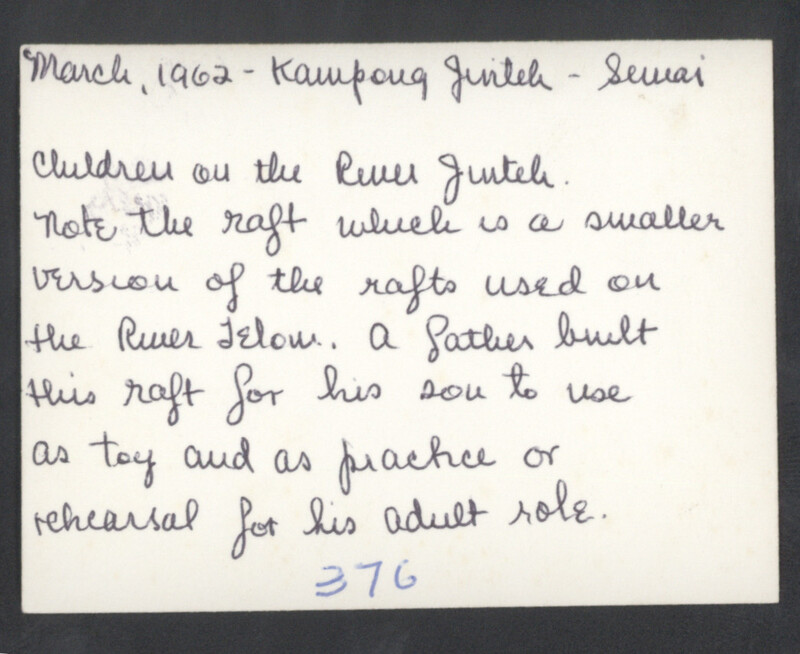 March, 1962 - Kampong Jinteh - Semai
Children on the River Jinteh.
Note the raft which is a smaller
version of the rafts used on
the River Telom. A father built
this raft for his son to use
as toy and as practice or
rehearsal for his adult role.
376